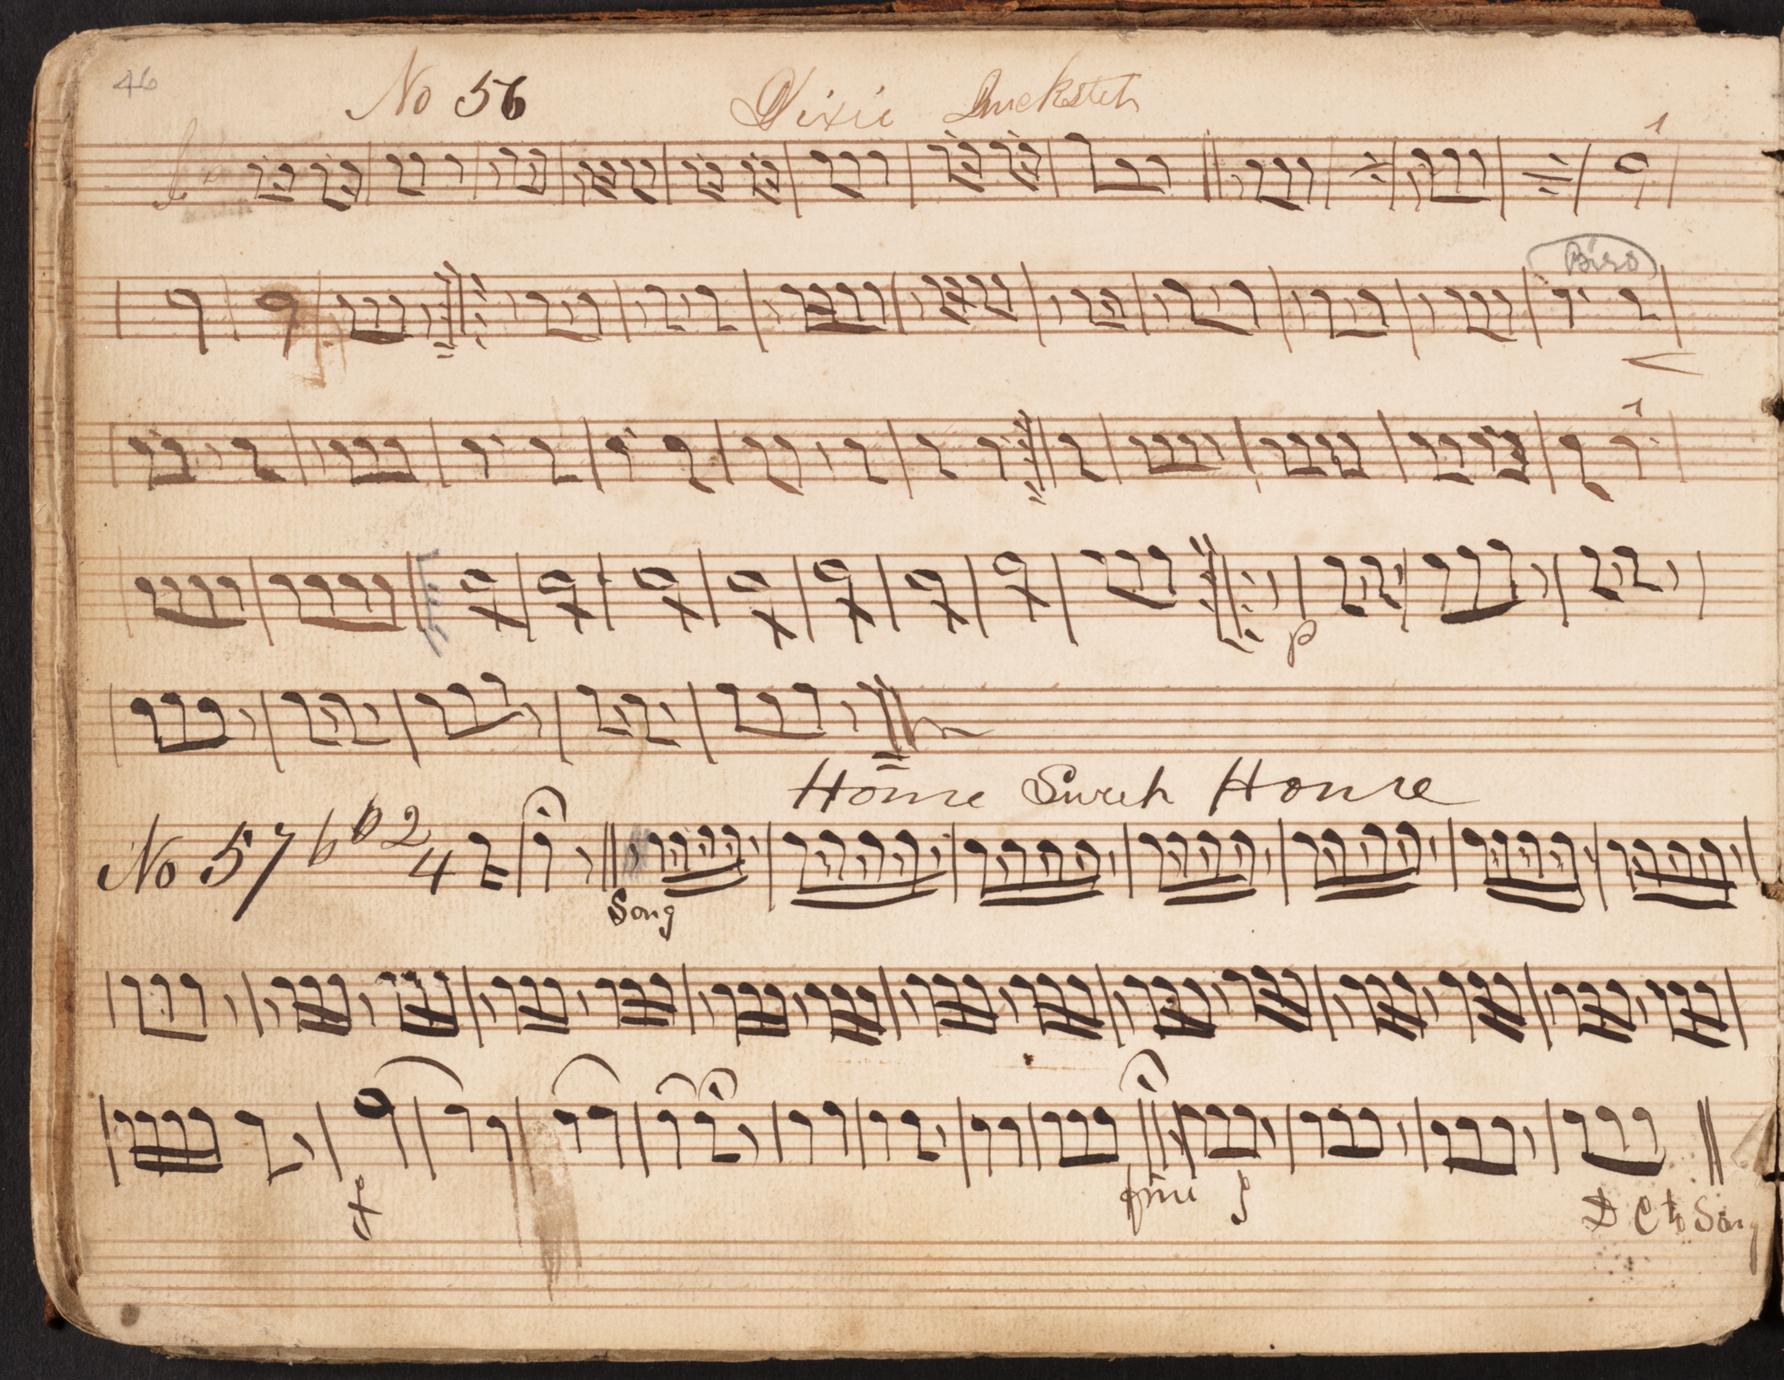 46
No 56 Dixie Quicksteh
1
Biso
1
p
Home Sweeh Home
No 57 2/4
Song
f
fine p
D C to Song